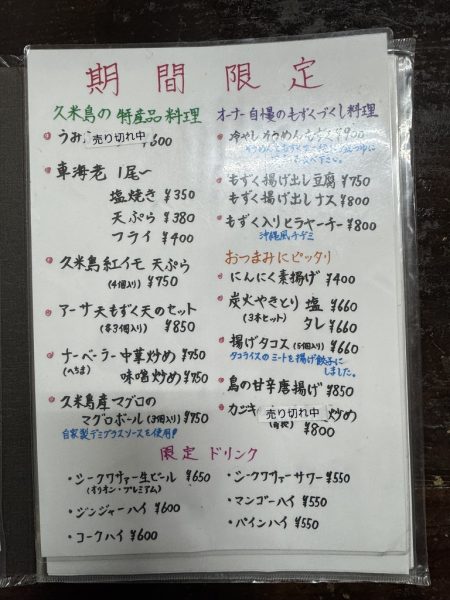 期間限定
久米島の特産品料理
うみ 売り切れ中 ¥600
車海老 1尾～
塩焼き ¥350
天ぷら ¥380
フライ ¥400
久米島紅イモ 天ぷら
(4個入り) ¥750
アーサ天もずく天のセット
(各3個入り) ¥850
ナーベーラー中華炒め ¥750
(へちま) 味噌炒め ¥750
久米島産マグロの
マグロボール (3個入り) ¥750
自家製デミグラスソースを使用!
オーナー自慢のもずくづくし料理
冷やしそうめんもずく ¥900
もずく揚げ出し豆腐 ¥750
もずく揚げ出しナス ¥800
もずく入りヒラヤーチー ¥800
沖縄風チヂミ
おつまみにピッタリ
にんにく素揚げ ¥400
炭火やきとり 塩 ¥660
(3本セット) タレ ¥660
揚げタコス (5個入り) ¥660
タコライスのミートを揚げ餃子にしました。
鳥の甘辛唐揚げ ¥850
カジキ 売り切れ中 炒め
¥800
限定ドリンク
・シークワサァー生ビール ¥650
(オリオン・プレミアム)
・ジンジャーハイ ¥600
・コークハイ ¥600
・シークワサァーサワー ¥550
・マンゴーハイ ¥550
・パインハイ ¥550